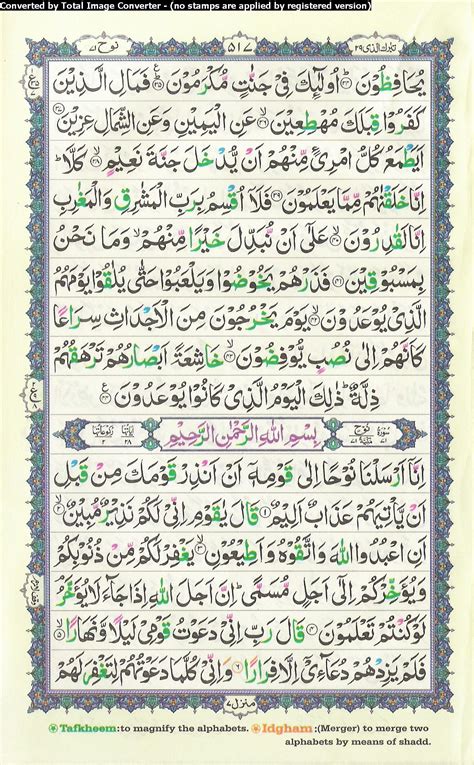 Converted by Total Image Converter - (no stamps are applied by registered version)
تبرك الذى ٢٩ ٥١٧ نوح ٧١
يُحَافِظُوْنَ ﴿٣٤﴾ اُولٰٓئِكَ فِیْ جَنّٰتٍ مُّكْرَمُوْنَ ﴿٣٥﴾ فَمَالِ الَّذِیْنَ
كَفَرُوْا قِبَلَكَ مُهْطِعِیْنَ ﴿٣٦﴾ عَنِ الْیَمِیْنِ وَعَنِ الشِّمَالِ عِزِیْنَ ﴿٣٧﴾
اَیَطْمَعُ كُلُّ امْرِیٍٔ مِّنْهُمْ اَنْ یُّدْخَلَ جَنَّةَ نَعِیْمٍ ﴿٣٨﴾ كَلَّا ؕ
اِنَّا خَلَقْنٰهُمْ مِّمَّا یَعْلَمُوْنَ ﴿٣٩﴾ فَلَاۤ اُقْسِمُ بِرَبِّ الْمَشٰرِقِ وَالْمَغٰرِبِ
اِنَّا لَقٰدِرُوْنَ ﴿٤٠﴾ عَلٰۤی اَنْ نُّبَدِّلَ خَیْرًا مِّنْهُمْ ۙ وَمَا نَحْنُ
بِمَسْبُوْقِیْنَ ﴿٤١﴾ فَذَرْهُمْ یَخُوْضُوْا وَیَلْعَبُوْا حَتّٰی یُلٰقُوْا یَوْمَهُمُ
الَّذِیْ یُوْعَدُوْنَ ﴿٤٢﴾ یَوْمَ یَخْرُجُوْنَ مِنَ الْاَجْدَاثِ سِرَاعًا
كَاَنَّهُمْ اِلٰی نُصُبٍ یُّوْفِضُوْنَ ﴿٤٣﴾ خَاشِعَةً اَبْصَارُهُمْ تَرْهَقُهُمْ
ذِلَّةٌ ؕ ذٰلِكَ الْیَوْمُ الَّذِیْ كَانُوْا یُوْعَدُوْنَ ﴿٤٤﴾
سُوْرَةُ نُوْحٍ مَكِّيَّةٌ ٧١ بِسْمِ اللهِ الرَّحْمٰنِ الرَّحِیْمِ اٰیاتها ٢٨ ركوعاتها ٢
اِنَّاۤ اَرْسَلْنَا نُوْحًا اِلٰی قَوْمِهٖۤ اَنْ اَنْذِرْ قَوْمَكَ مِنْ قَبْلِ
اَنْ یَّاْتِیَهُمْ عَذَابٌ اَلِیْمٌ ﴿١﴾ قَالَ یٰقَوْمِ اِنِّیْ لَكُمْ نَذِیْرٌ مُّبِیْنٌ ﴿٢﴾
اَنِ اعْبُدُوا اللهَ وَاتَّقُوْهُ وَاَطِیْعُوْنِ ﴿٣﴾ یَغْفِرْ لَكُمْ مِّنْ ذُنُوْبِكُمْ
وَیُؤَخِّرْكُمْ اِلٰۤی اَجَلٍ مُّسَمًّی ؕ اِنَّ اَجَلَ اللهِ اِذَا جَآءَ لَا یُؤَخَّرُ ۘ
لَوْ كُنْتُمْ تَعْلَمُوْنَ ﴿٤﴾ قَالَ رَبِّ اِنِّیْ دَعَوْتُ قَوْمِیْ لَیْلًا وَّنَهَارًا ﴿٥﴾
فَلَمْ یَزِدْهُمْ دُعَآءِیْۤ اِلَّا فِرَارًا ﴿٦﴾ وَاِنِّیْ كُلَّمَا دَعَوْتُهُمْ لِتَغْفِرَ لَهُمْ
منزل ٧
Tafkheem:to magnify the alphabets. Idgham:(Merger) to merge two
alphabets by means of shadd.